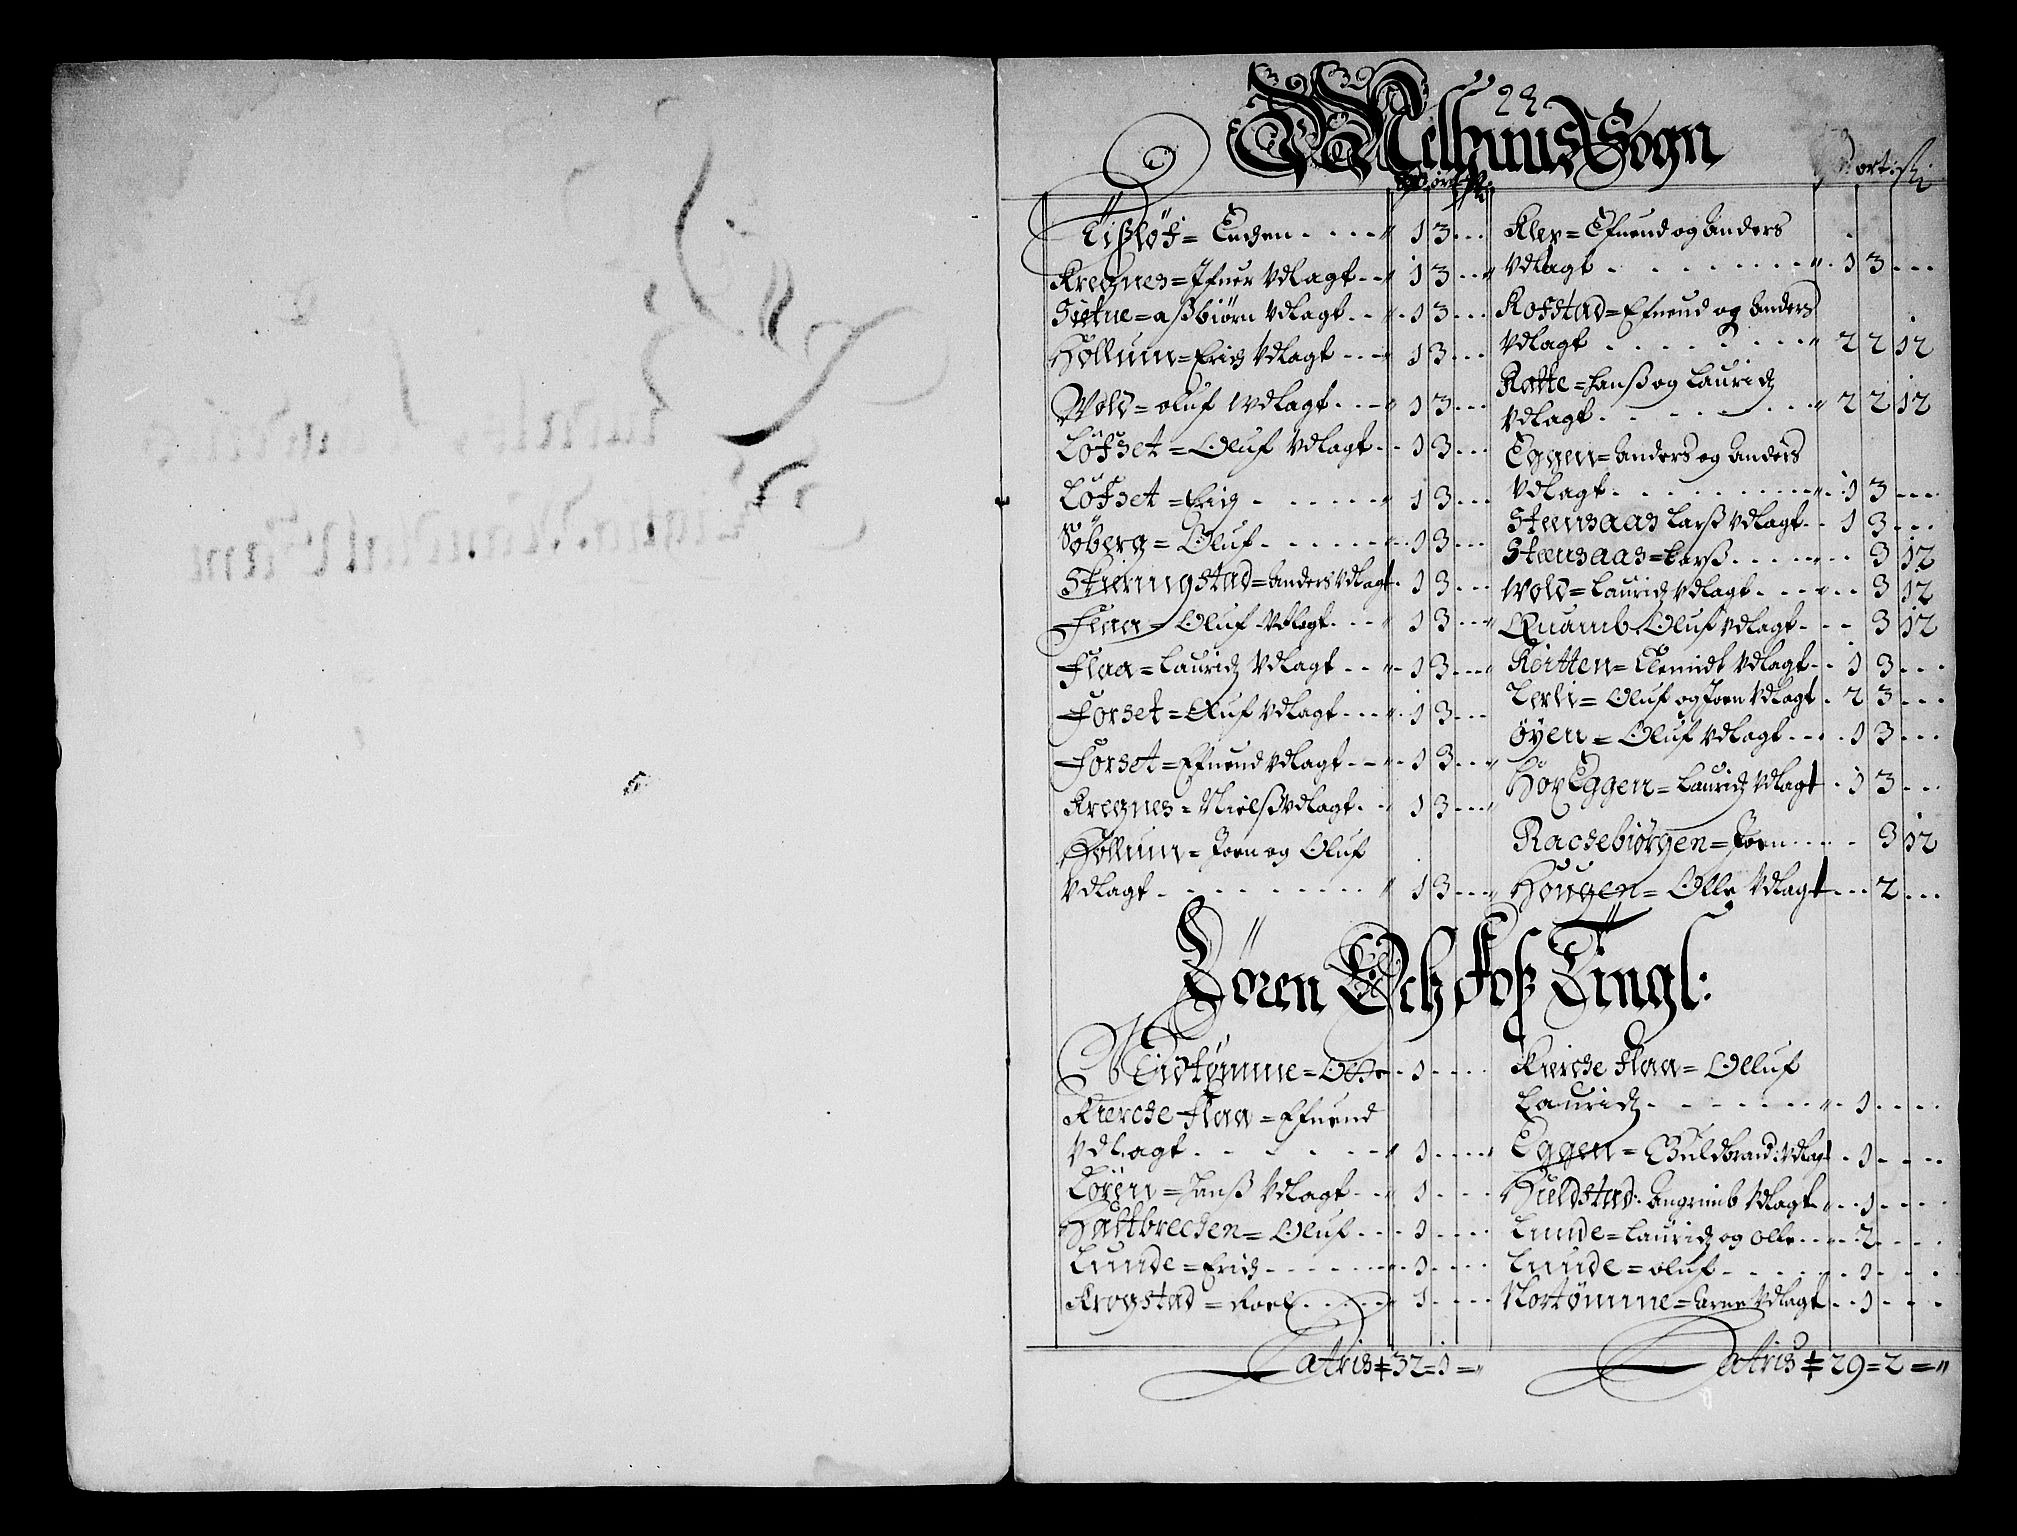 23
Melhuus Sogn
ort: sk:
Lißløf = Enchen 1 3
Kregnes = Ifuer Vdlagt 1 3
Sietne = aßbiørn Vdlagt 1 3
Hollum = Erich Vdlagt 1 3
Wold = oluf Vdlagt 1 3
Løfset = Oluf Vdlagt 1 3
Løfset = Erich 1 3
Søberg = Oluf 1 3
Skieringstad = Anders Vdlagt 1 3
Flaa = Oluf Vdlagt 1 3
Flaa = Lauridz Vdlagt 1 3
Forset = Oluf Vdlagt 1 3
Forset = Efuend Vdlagt 1 3
Kregnes = Nielß Vdlagt 1 3
Hollum = Joen og Oluf
Vdlagt 1 3
Klep = Efuend og Anders
Vdlagt 1 3
Rofstad = Efuend og Anders
Vdlagt 2 2 12
Ratte = Hanß og Lauridz
Vdlagt 2 2 12
Eggen = Anders og Anders
Vdlagt 1 3
Steensaas Larß Vdlagt 1 3
Steensaas = Larß 3 12
Wold = Lauridz Vdlagt 3 12
Quamb Oluf Vdlagt 3 12
Kortten = Clemidt Vdlagt 1 3
Lerli = Oluf og Joen Vdlagt 2 3
øyen = Oluf Vdlagt 1 3
Hor Eggen = Lauridz Vdlagt 1 3
Rachebiørgen = Joen 3 12
Hougen = Olle Vdlagt 2
Løren Och Foß Tingl:
Midtømme = Olle 1
Kierche Flaa = Efuend
Vdlagt 1
Løren = Hanß Vdlagt 1
Haltbrechen = Oluf 1
Lunde = Erich 1
Krogstad = Roel 1
Kierche Flaa = Olluf
Lauridz 1
Eggen = Guldbrand: Vdlagt 1
Huldstad: Angrimb Vdlagt 1
Lunde = Lauridz og Olle 2
Lunde = oluf 1
Nortømme = Arne Vdlagt 1
Lateris ‡ 32 = 1 = "
Lateris ‡ 29 = 2 = "